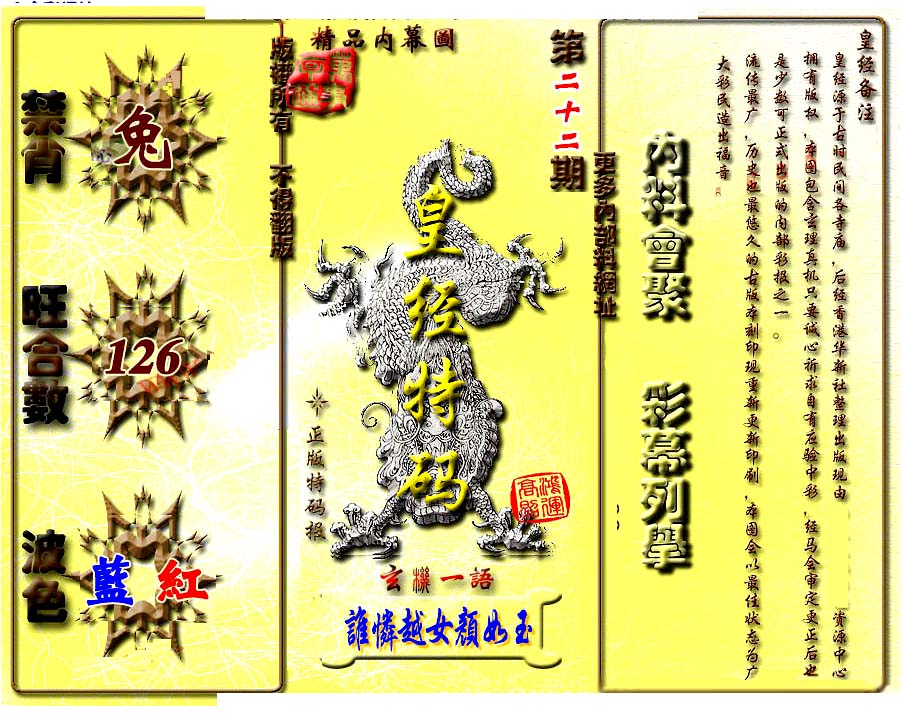 禁肖
兔
旺合數
126
波色
藍 紅
版權所有 不得翻版
精品内幕圖
第二十二期
皇经特码
正版特码报
鴻運高照
玄機一語
誰憐越女顏如玉
更多内部料網址
内料會聚 彩幕列舉
皇经备注
皇经源于古时民间各寺庙,后经香港华新社整理出版现由 资源中心
拥有版权,本图包含玄理真机只要诚心祈求自有应验中彩,经马会审定更正后也
是少数可正式出版的内部彩报之一。
流传最广,历史也最悠久的古版本刻印现重新更新印刷,本图会以最佳状态为广
大彩民造出福音